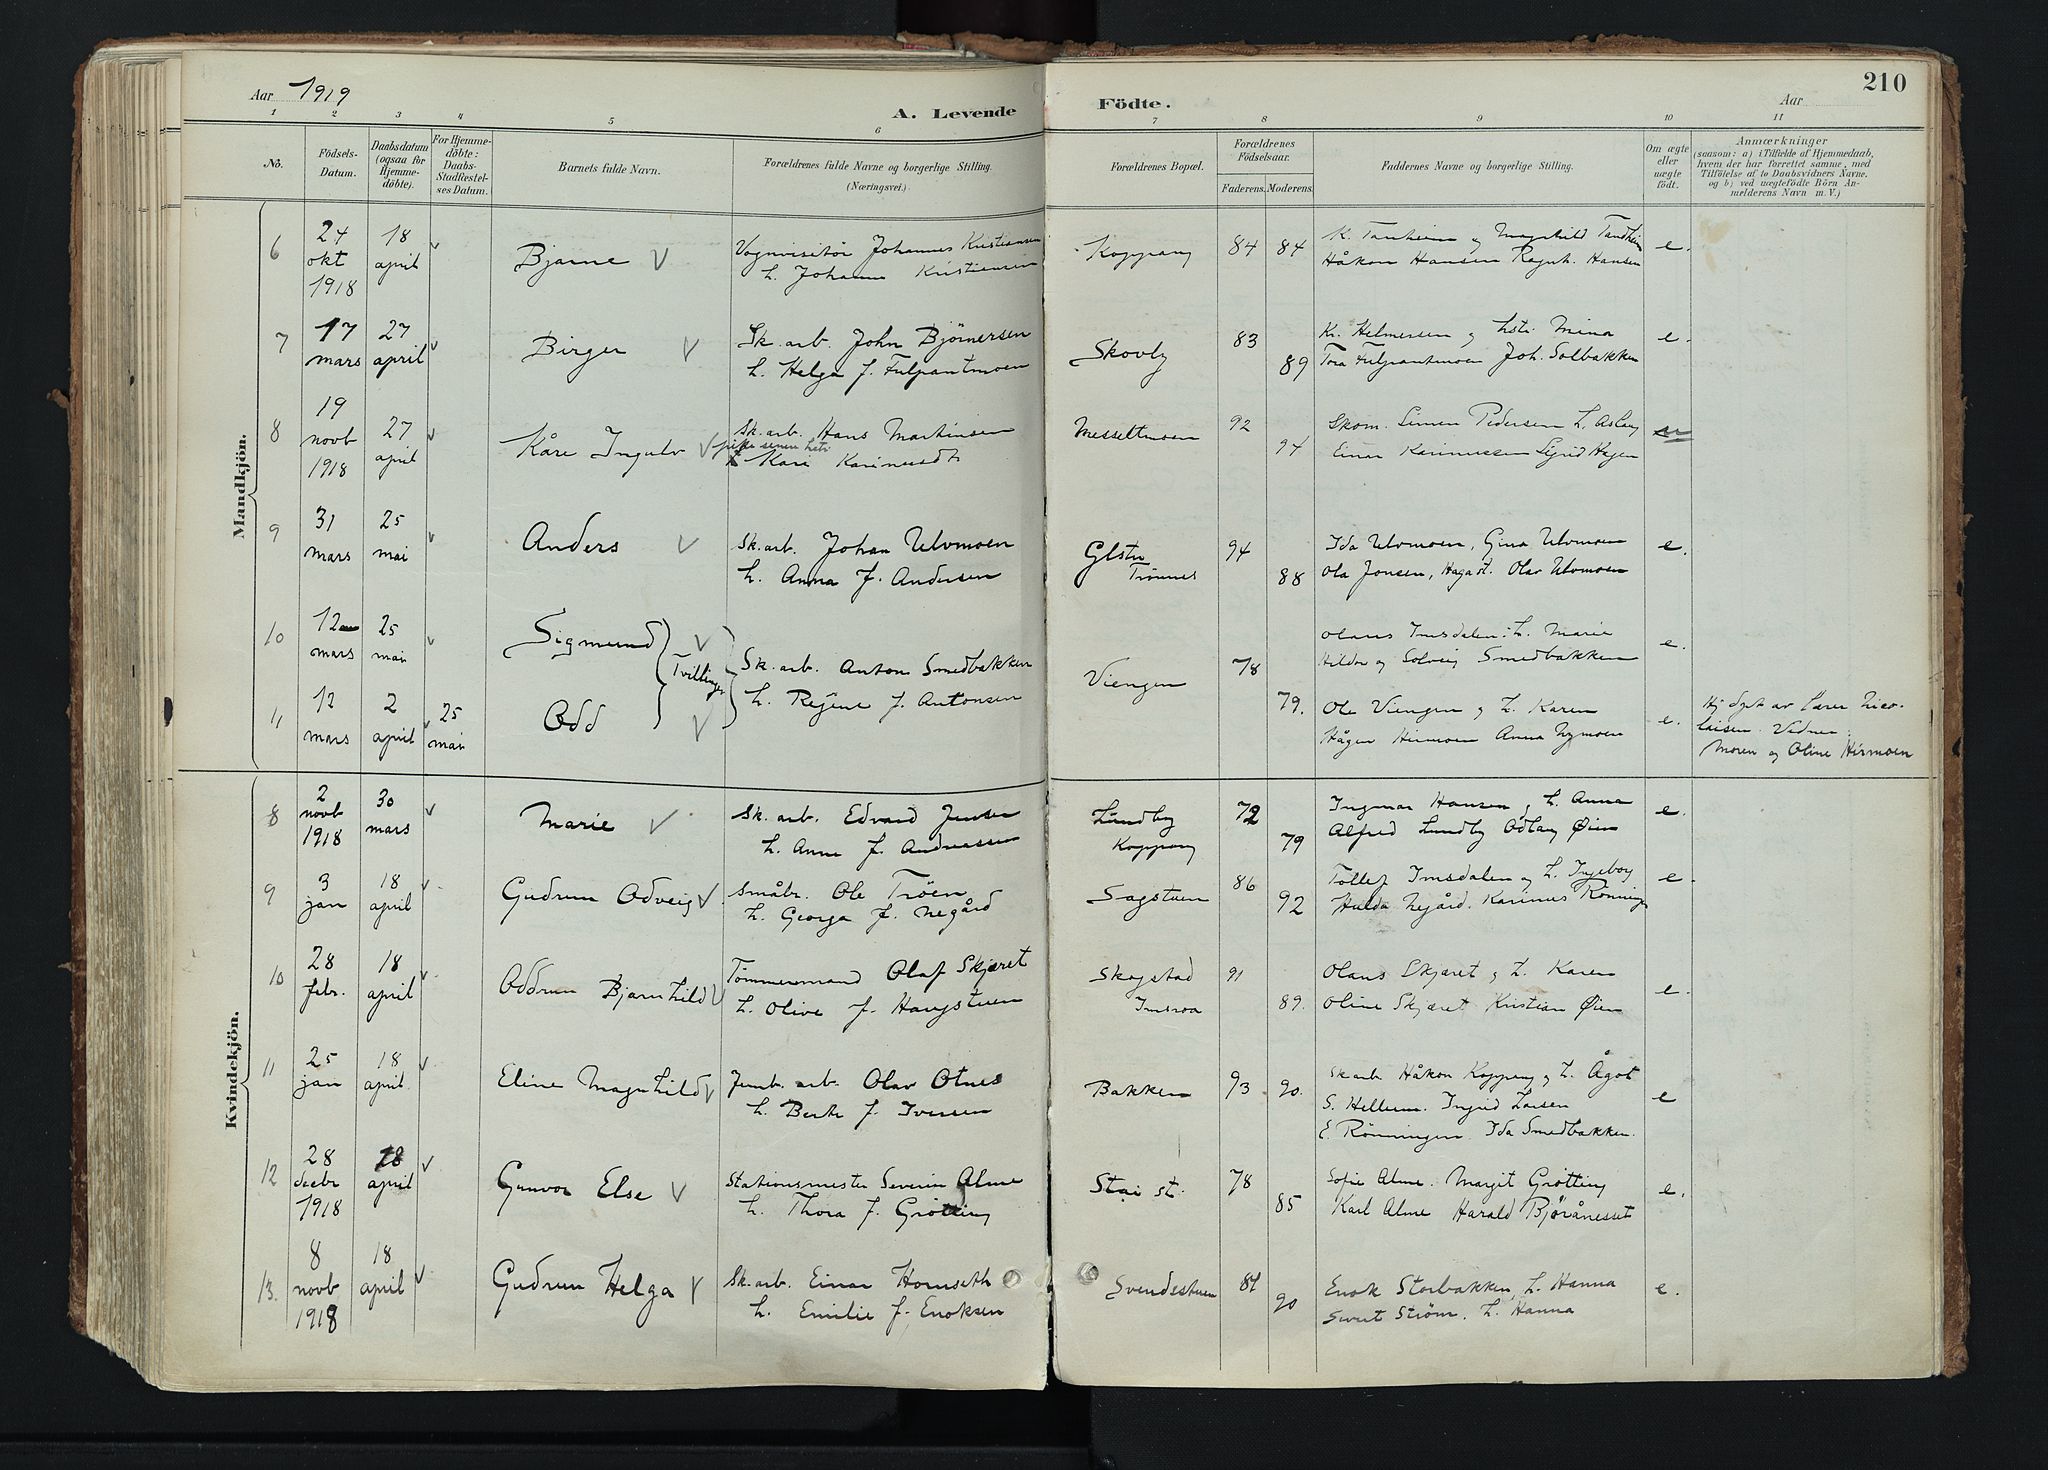 Aar 1919
A. Levende
Födte.
Aar
210
1 2 3 4 5 6 7 8 9 10 11
No.
Födsels-
Datum.
Daabsdatum
(ogsaa for
Hjemme-
döbte).
For Hjemme-
döbte:
Daabs-
Stadfæstel-
ses Datum.
Barnets fulde Navn.
Forældrenes fulde Navne og borgerlige Stilling.
(Næringsvei.)
Forældrenes Bopæl.
Forældrenes
Födselsaar.
Faderens. Moderens.
Faddernes Navne og borgerlige Stilling.
Om ægte
eller
uægte
födt.
Anmærkninger
(saasom: a) i Tilfælde af Hjemmedaab,
hvem der har forrettet samme, med
Tilföielse af to Daabsvidners Navne.
og b) ved uægtefödte Börn An-
melderens Navn m. V.)
Mandkjön.
6
24 okt 1918
18 april
Bjarne
Vognvisitör Johannes Kristiansen
h. Johanne Kristiansen
Koppang
84 84
K. Tanheim og Magnhild Tandheim
Håkon Hansen Ragnh. Hansen
e.
7
17 mars
27 april
Birger
Sk. arb. John Björnersen
h. Helga f. Fulpantmoen
Skovly
83 89
Kr. Helmersen og hstr. Mina
Tora Fulpantmoen Joh. Solbakken
e.
8
19 novb 1918
27 april
Kåre Ingulv
Sk. arb. Hans Martinsen
pike senere hstr
Kari Karinusdt
Messeltmoen
92 94
Skom. Simen Pedersen h. Aslaug
Einar Karinussen Sigrid Hagen
9
31 mars
25 mai
Anders
Sk. arb. Johan Ulvmoen
h. Anna f. Andersen
Glstu
Trönnes
94 88
Ida Ulvmoen, Gina Ulvmoen
Ola Jonsen, Hagast. Olav Ulvmoen
e.
10
12 mars
25 mai
Sigmund
Tvillinger
Sk. arb. Anton Smedbakken
h. Regine f. Antonsen
Viengen
78 79.
Olaus Imsdalen: h. Marie
Hilda og Solveig Smedbakken
e.
11
12 mars
2 april
25 mai
Odd
Ole Viengen og h. Karen
Hågen Hirmoen Anna Nymoen
e.
Hj. døpt av lærer Nico-
laisen. Vidner:
Moren og Oline Hirmoen
Kvindekjön.
8
2 novb 1918
30 mars
Marie
Sk. arb. Edvard Jensen
h. Anne f. Andreassen
Lundby
Koppang
72 79
Ingmar Hansen og h. Anna
Alfred Lundby Odlaug Øien
e.
9
3 jan
18 april
Gudrun Odveig
Småbr. Ole Tröen
h. Georga f. Negård
Sagstuen
86 92
Tollef Imsdalen og h. Ingeborg
Hulda Negård. Karinus Rönningen
e.
10
28 febr.
18 april
Oddrun Bjarnhild
Tömmermand Olaf Skjæret
h. Olive f. Haugstuen
Skogstad
Imsroa
91 89.
Olaus Skjæret og h. Karen
Oline Skjæret Kristian Øien
e.
11
25 jan
18 april
Eline Magnhild
Jernb. arb. Olav Otnes
h. Berte f. Iversen
Bakken
93 90.
Sk arb. Håkon Koppang og h. Ågot
S. Hellum. Ingrid Larsen
E. Rönningen. Ida Smedbakken.
e
12
28 decbr 1918
18 april
Gunvor Else
Stationsmester Severin Alme
h. Thora f. Grötting
Stai st.
78 85
Sofie Alme. Margit Grötting
Karl Alme Harald Bjøråneset
e.
13.
8 novb 1918
18 april
Gudrun Helga
Sk. arb. Einar Homseth
h. Emilie f. Enoksen
Svendstuen
87 90
Enok Storbakken, h. Hanna
Sivert Ström. h. Hanna
e.